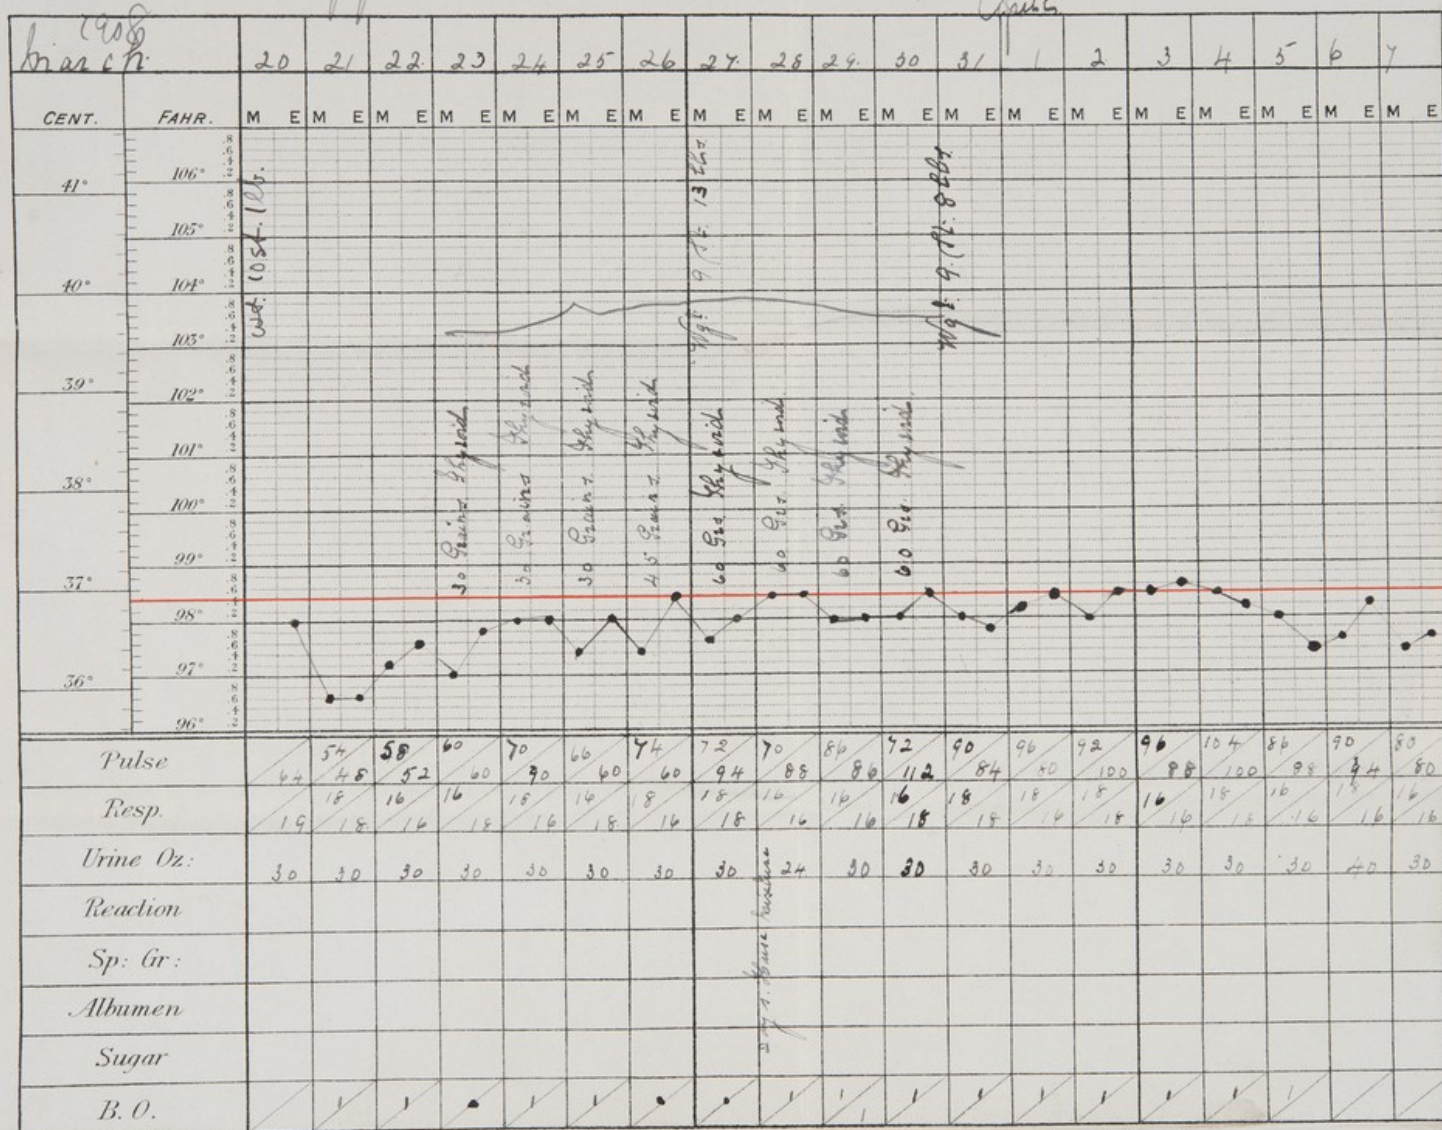 1908
March 20 21 22 23 24 25 26 27 28 29 30 31 1 2 3 4 5 6 7
CENT. FAHR. M E M E M E M E M E M E M E M E M E M E M E M E M E M E M E M E M E M E M E
41°
40°
39°
38°
37°
36°
106°
105°
104°
103°
102°
101°
100°
99°
98°
97°
96°
wt. 10 st. 1 lb.
30 Grains Thyroid
30 Grains Thyroid
30 Grains Thyroid
45 Grains Thyroid
Wgt. 9 St. 13 lbs.
60 Grs. Thyroid
60 Grs. Thyroid
60 Grs. Thyroid
60 Grs. Thyroid
Wgt. 9. St. 8 lbs.
Pulse 64 54/48 58/52 60/60 70/90 66/60 74/60 72/94 70/88 86/86 72/112 90/84 96/80 92/100 96/88 104/100 86/98 90/94 80/80
Resp. 19 18/18 16/16 16/18 18/16 16/18 18/16 18/18 16/16 16/16 16/18 18/18 18/16 18/18 16/16 18/18 16/16 18/16 16/16
Urine Oz: 30 30 30 30 30 30 30 30 24 30 30 30 30 30 30 30 30 40 30
Reaction
Sp: Gr:
Albumen
Sugar
B. O. 1 1 1 1 1 1 1 1 1 1 1 1 1 1